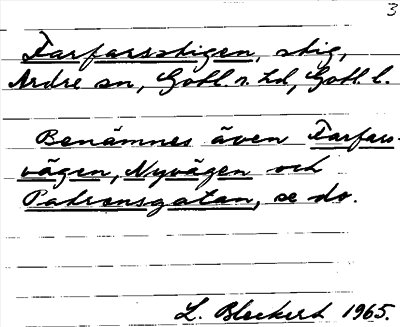 3
Farfarsstigen, stig,
Ardre sn, Gotl. n. hd, Gotl. l.
Benämnes även Farfars-
vägen, Nyvägen och
Patronsgatan, se do.
L. Bleckert 1965.